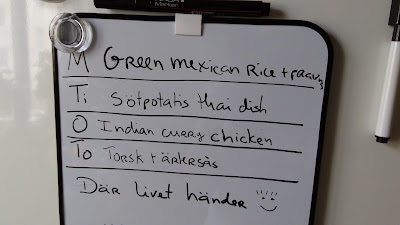 Marker
M Green mexican Rice + prawns
Ti Sötpotatis thai dish
O Indian curry chicken
To Torsk + ärtersås
Där livet händer